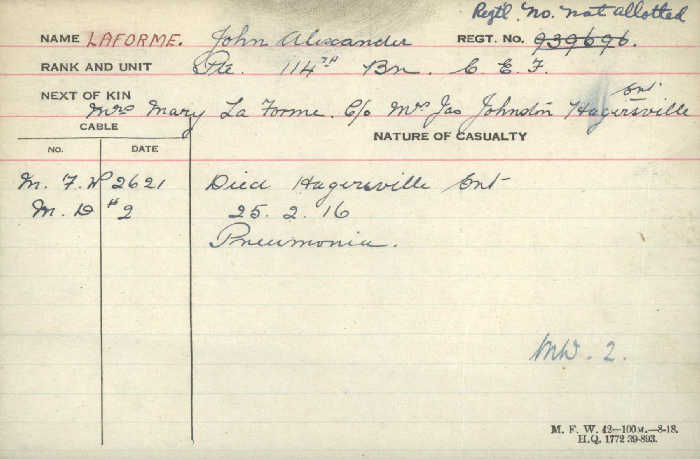 Regtl. No. not allotted
NAME LAFORME. John Alexander REGT. NO. 939696.
RANK AND UNIT Pte. 114TH Bn. C.E.F.
NEXT OF KIN Ont
Mrs Mary La Forme. C/o Mrs Jas Johnston Hagersville
CABLE NATURE OF CASUALTY
NO. DATE
M. F. W 2621 Died Hagersville Ont
M. D #2 25. 2. 16
Pneumonia.
MW. 2.
M. F. W. 42—100M.—8-18.
H.Q. 1772 39-893.